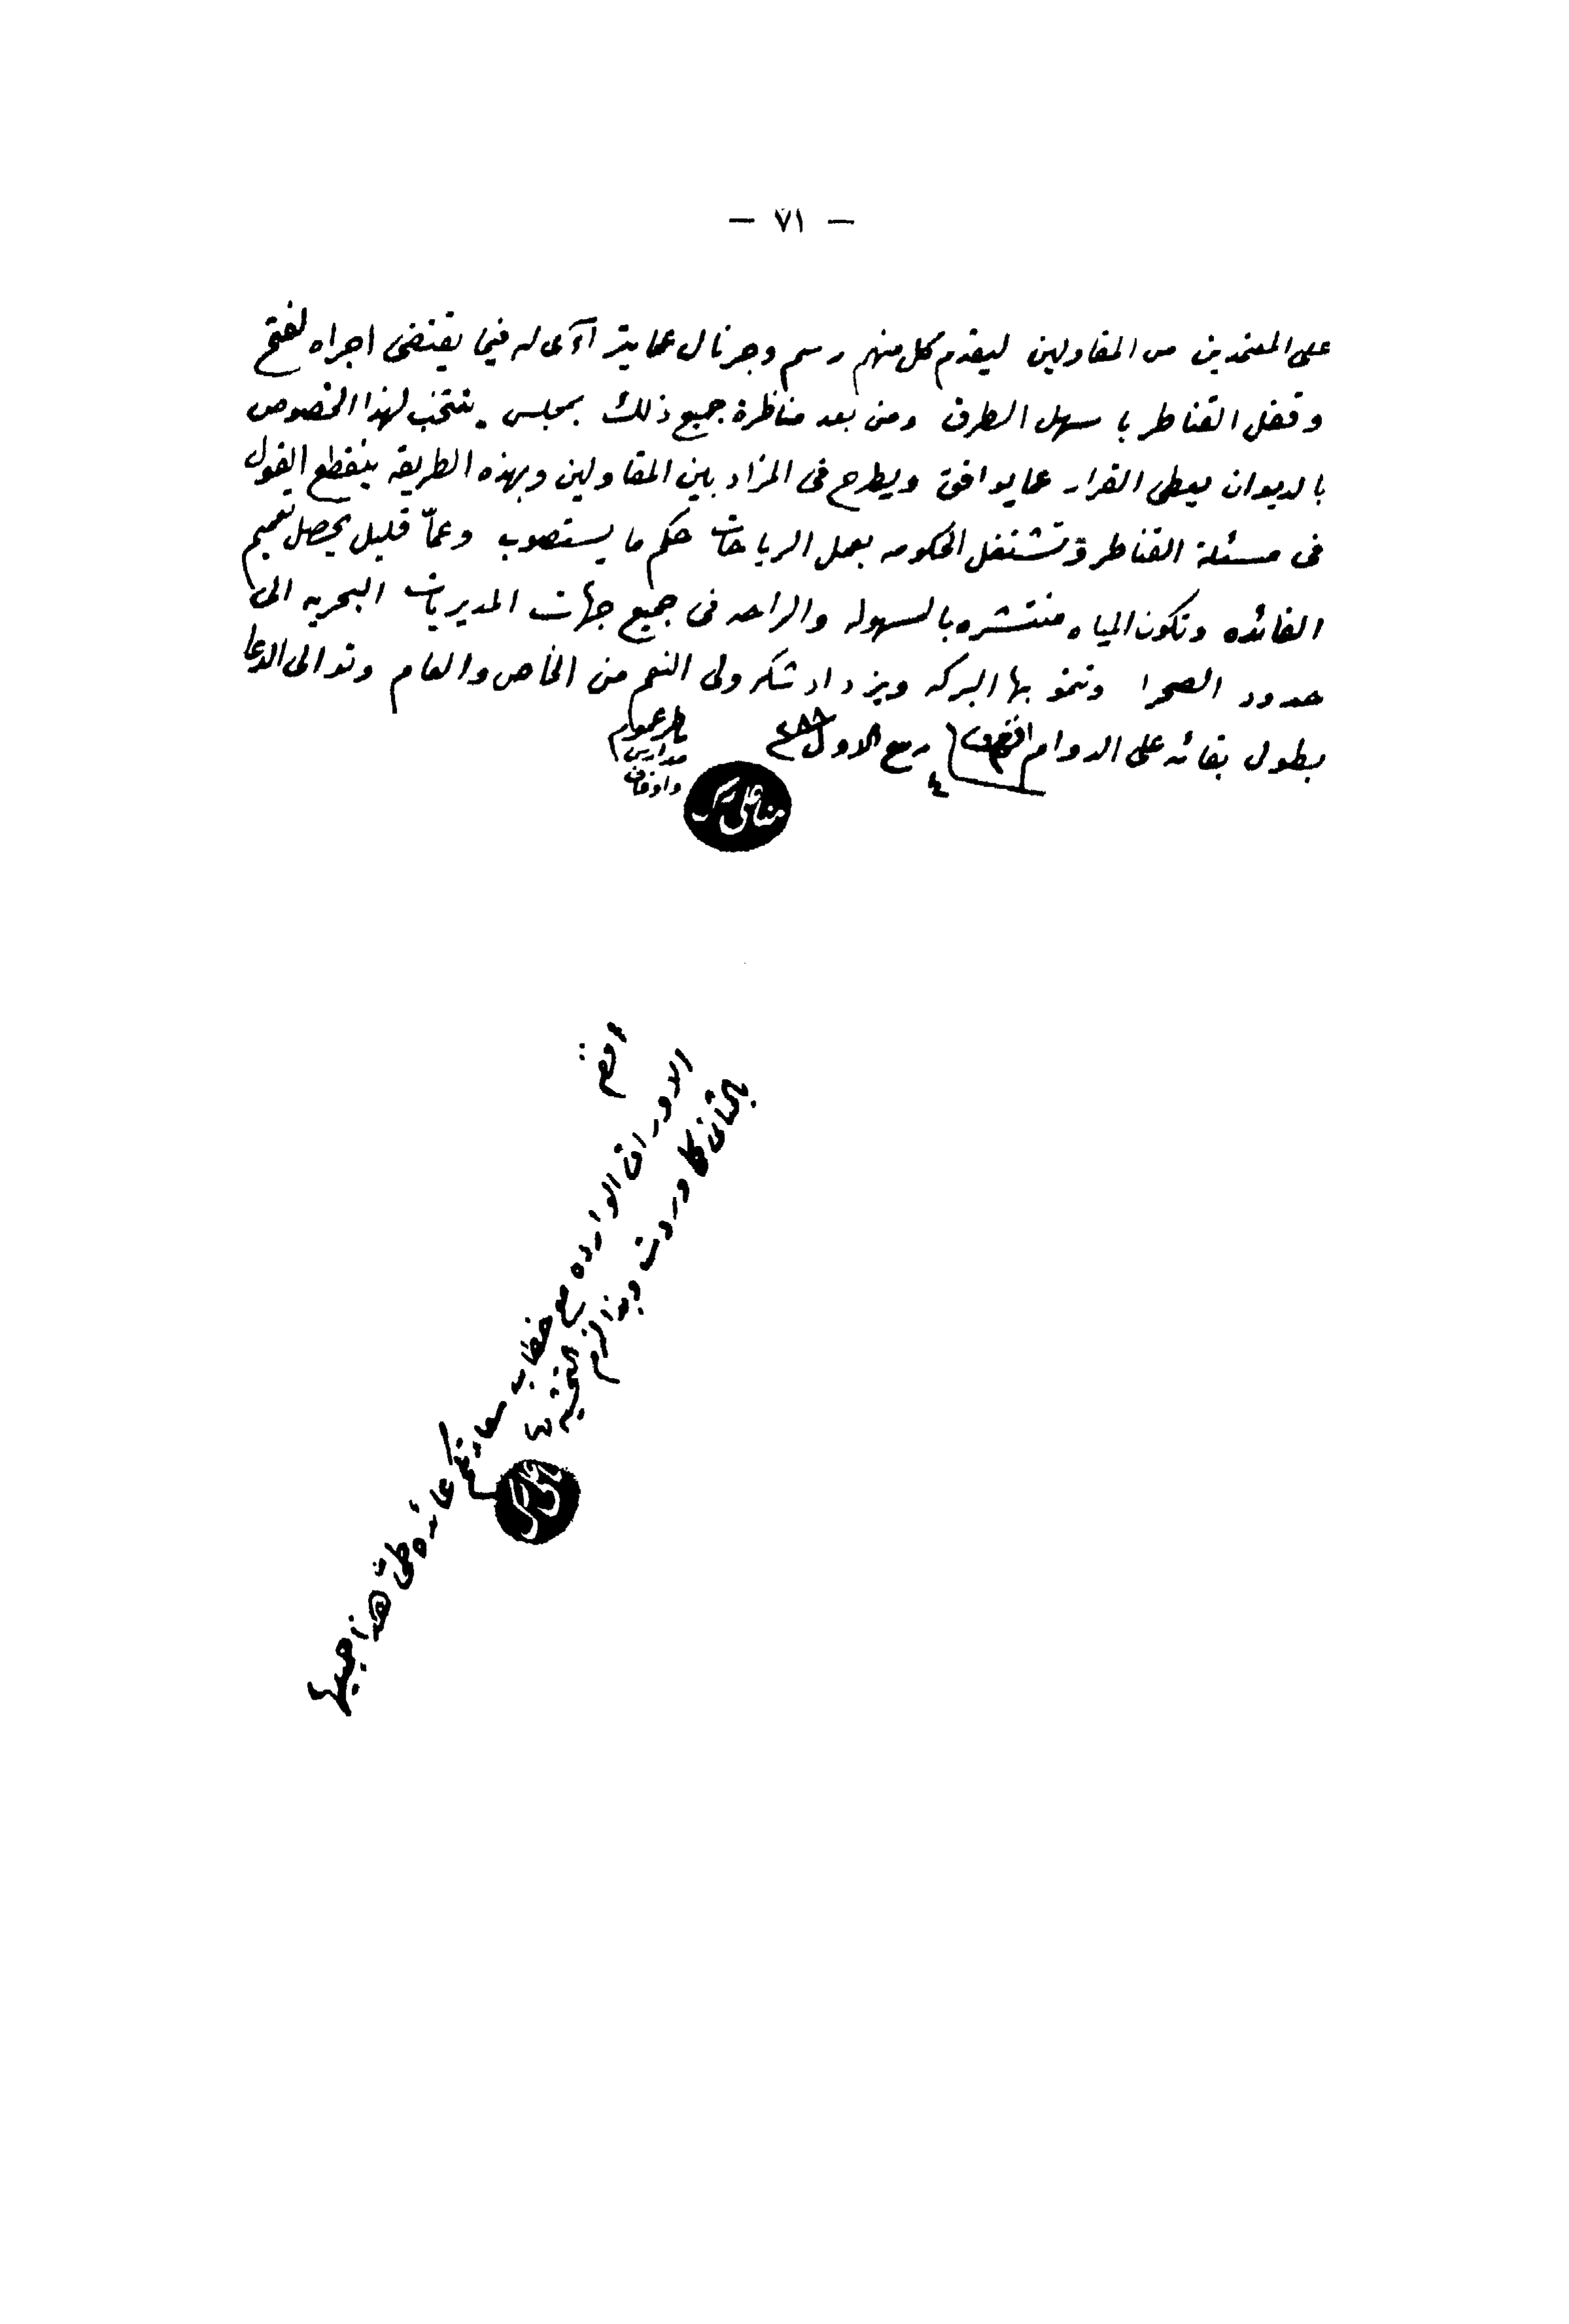 — ٧١ —
على المعتمدين من المقاولين ليقدم كل منهم رسم وجرنال عما يترآآى له فيما يقتضى اجراه لفتح
وقفل القناطر باسهل الطرق ومن بعد مناظرة جميع ذلك بمجلس ينتخب لهذا الخصوص
بالديوان يعطى القرار عما يوافق ويطرح فى المزاد بين المقاولين وبهذه الطريقه ينقطع القول
فى مسئلة القناطر وتشتغل الحكومه بعمل الرياحات حكم ما يستصوب وعمّا قليل يحصل تعميم
الفائده وتكون المياه منتشره بالسهوله والراحه فى جميع جهات المديريات البحريه الى
حدود الصحرا وتنمو بها البركه ويزداد شكر ولى النعم من الخاص والعام وتوالى الدعا
بطول بقائه على الدوام افندم ربيع الاول
ناظر عموم
مدارس
واوقاف
افندم
الاوراق الوارده مع خطاب سعادتكم عائده طى هذا جميعها
بالحافظه كما وردت وبذا لزم التحشيه